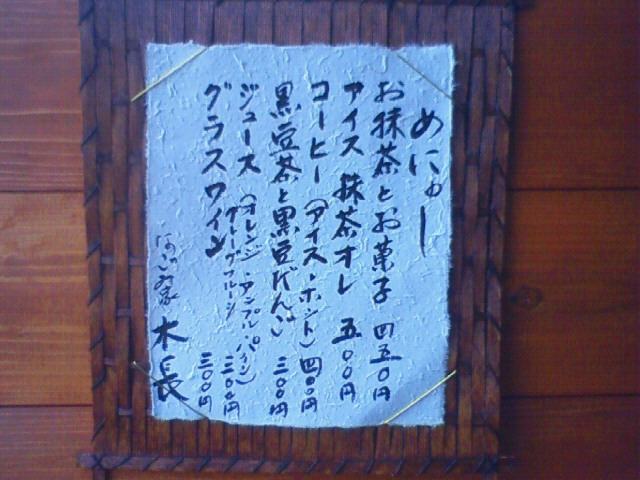 めにゅー
お抹茶とお菓子 四五〇円
アイス抹茶オレ 五〇〇円
コーヒー(アイス・ホット) 四〇〇円
黒豆茶と黒豆だんご 三〇〇円
ジュース(オレンジ・アップル・パイン)
グレープフルーツ 三〇〇円
グラスワイン 三〇〇円
木長